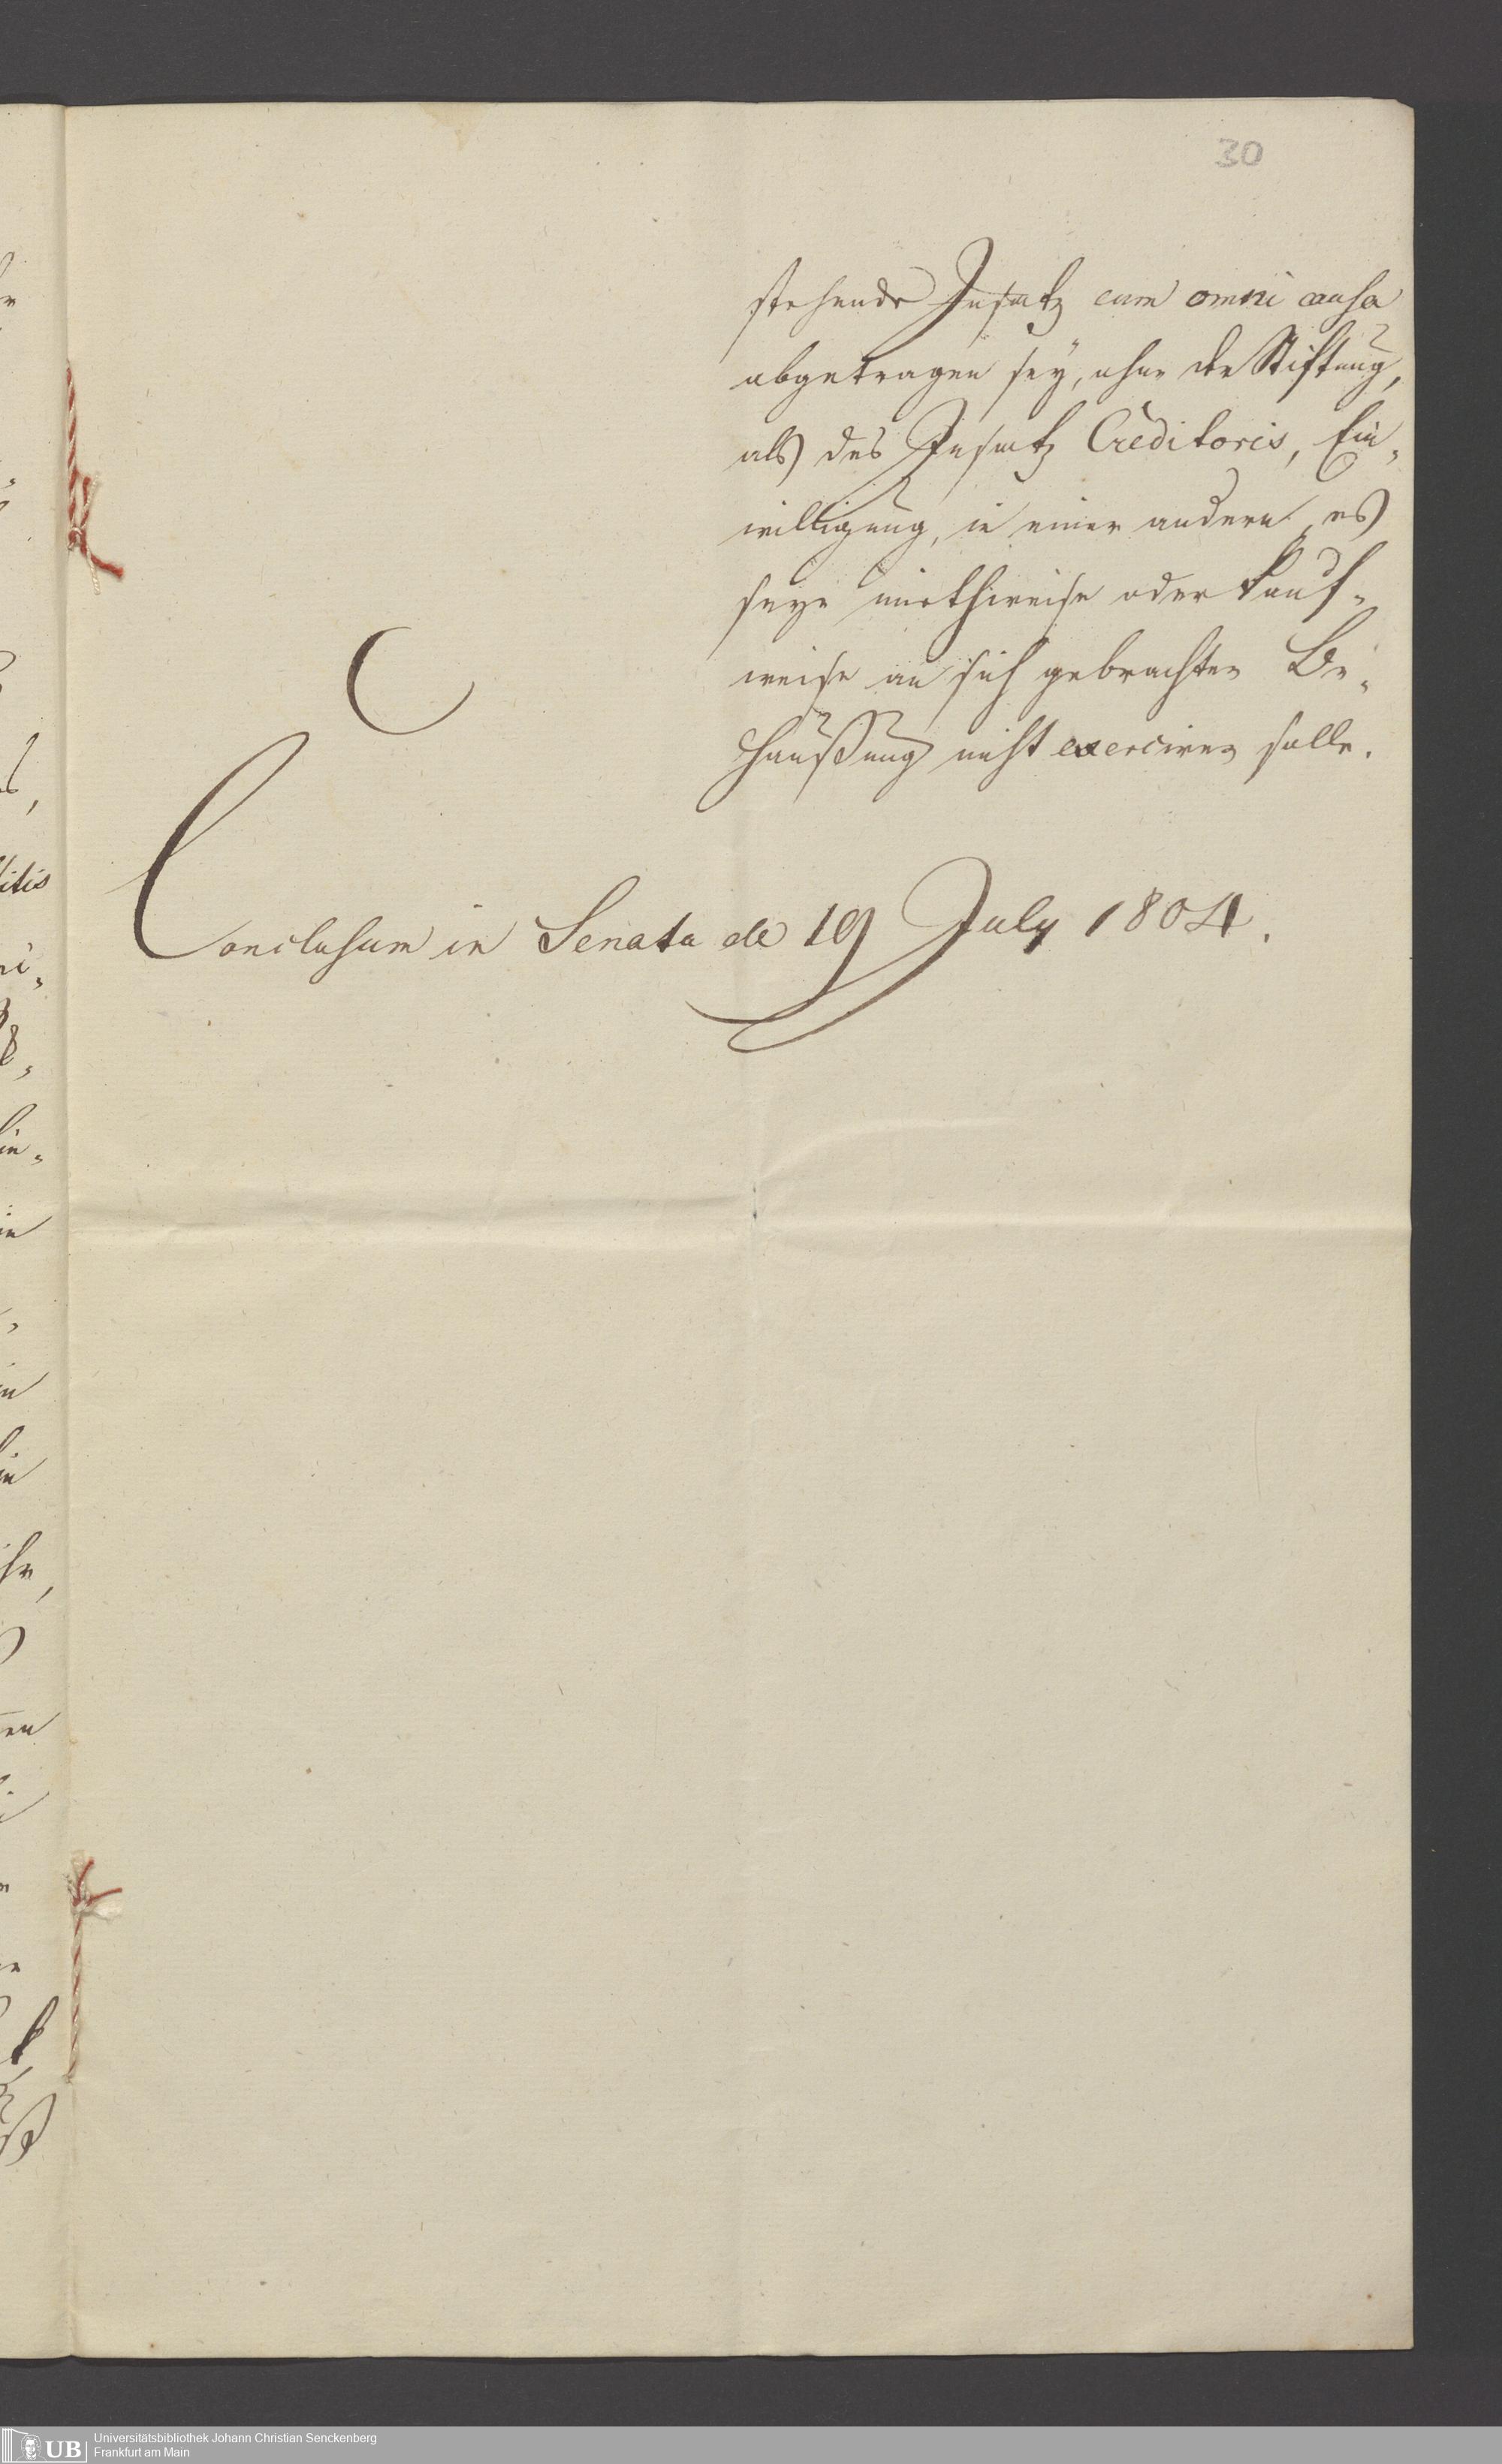 30
stehende Insatz cum omni causa
abgetragen sey, ohne der Stiftung,
als des Insatz Creditoris, Ein-
willigung, in einer andern, es
seye miethweise oder kauf-
weise an sich gebrachten Be-
haußung nicht exerciren solle.
Conclusum in Senatu de 19 July 1804.
UB Universitätsbibliothek Johann Christian Senckenberg
Frankfurt am Main